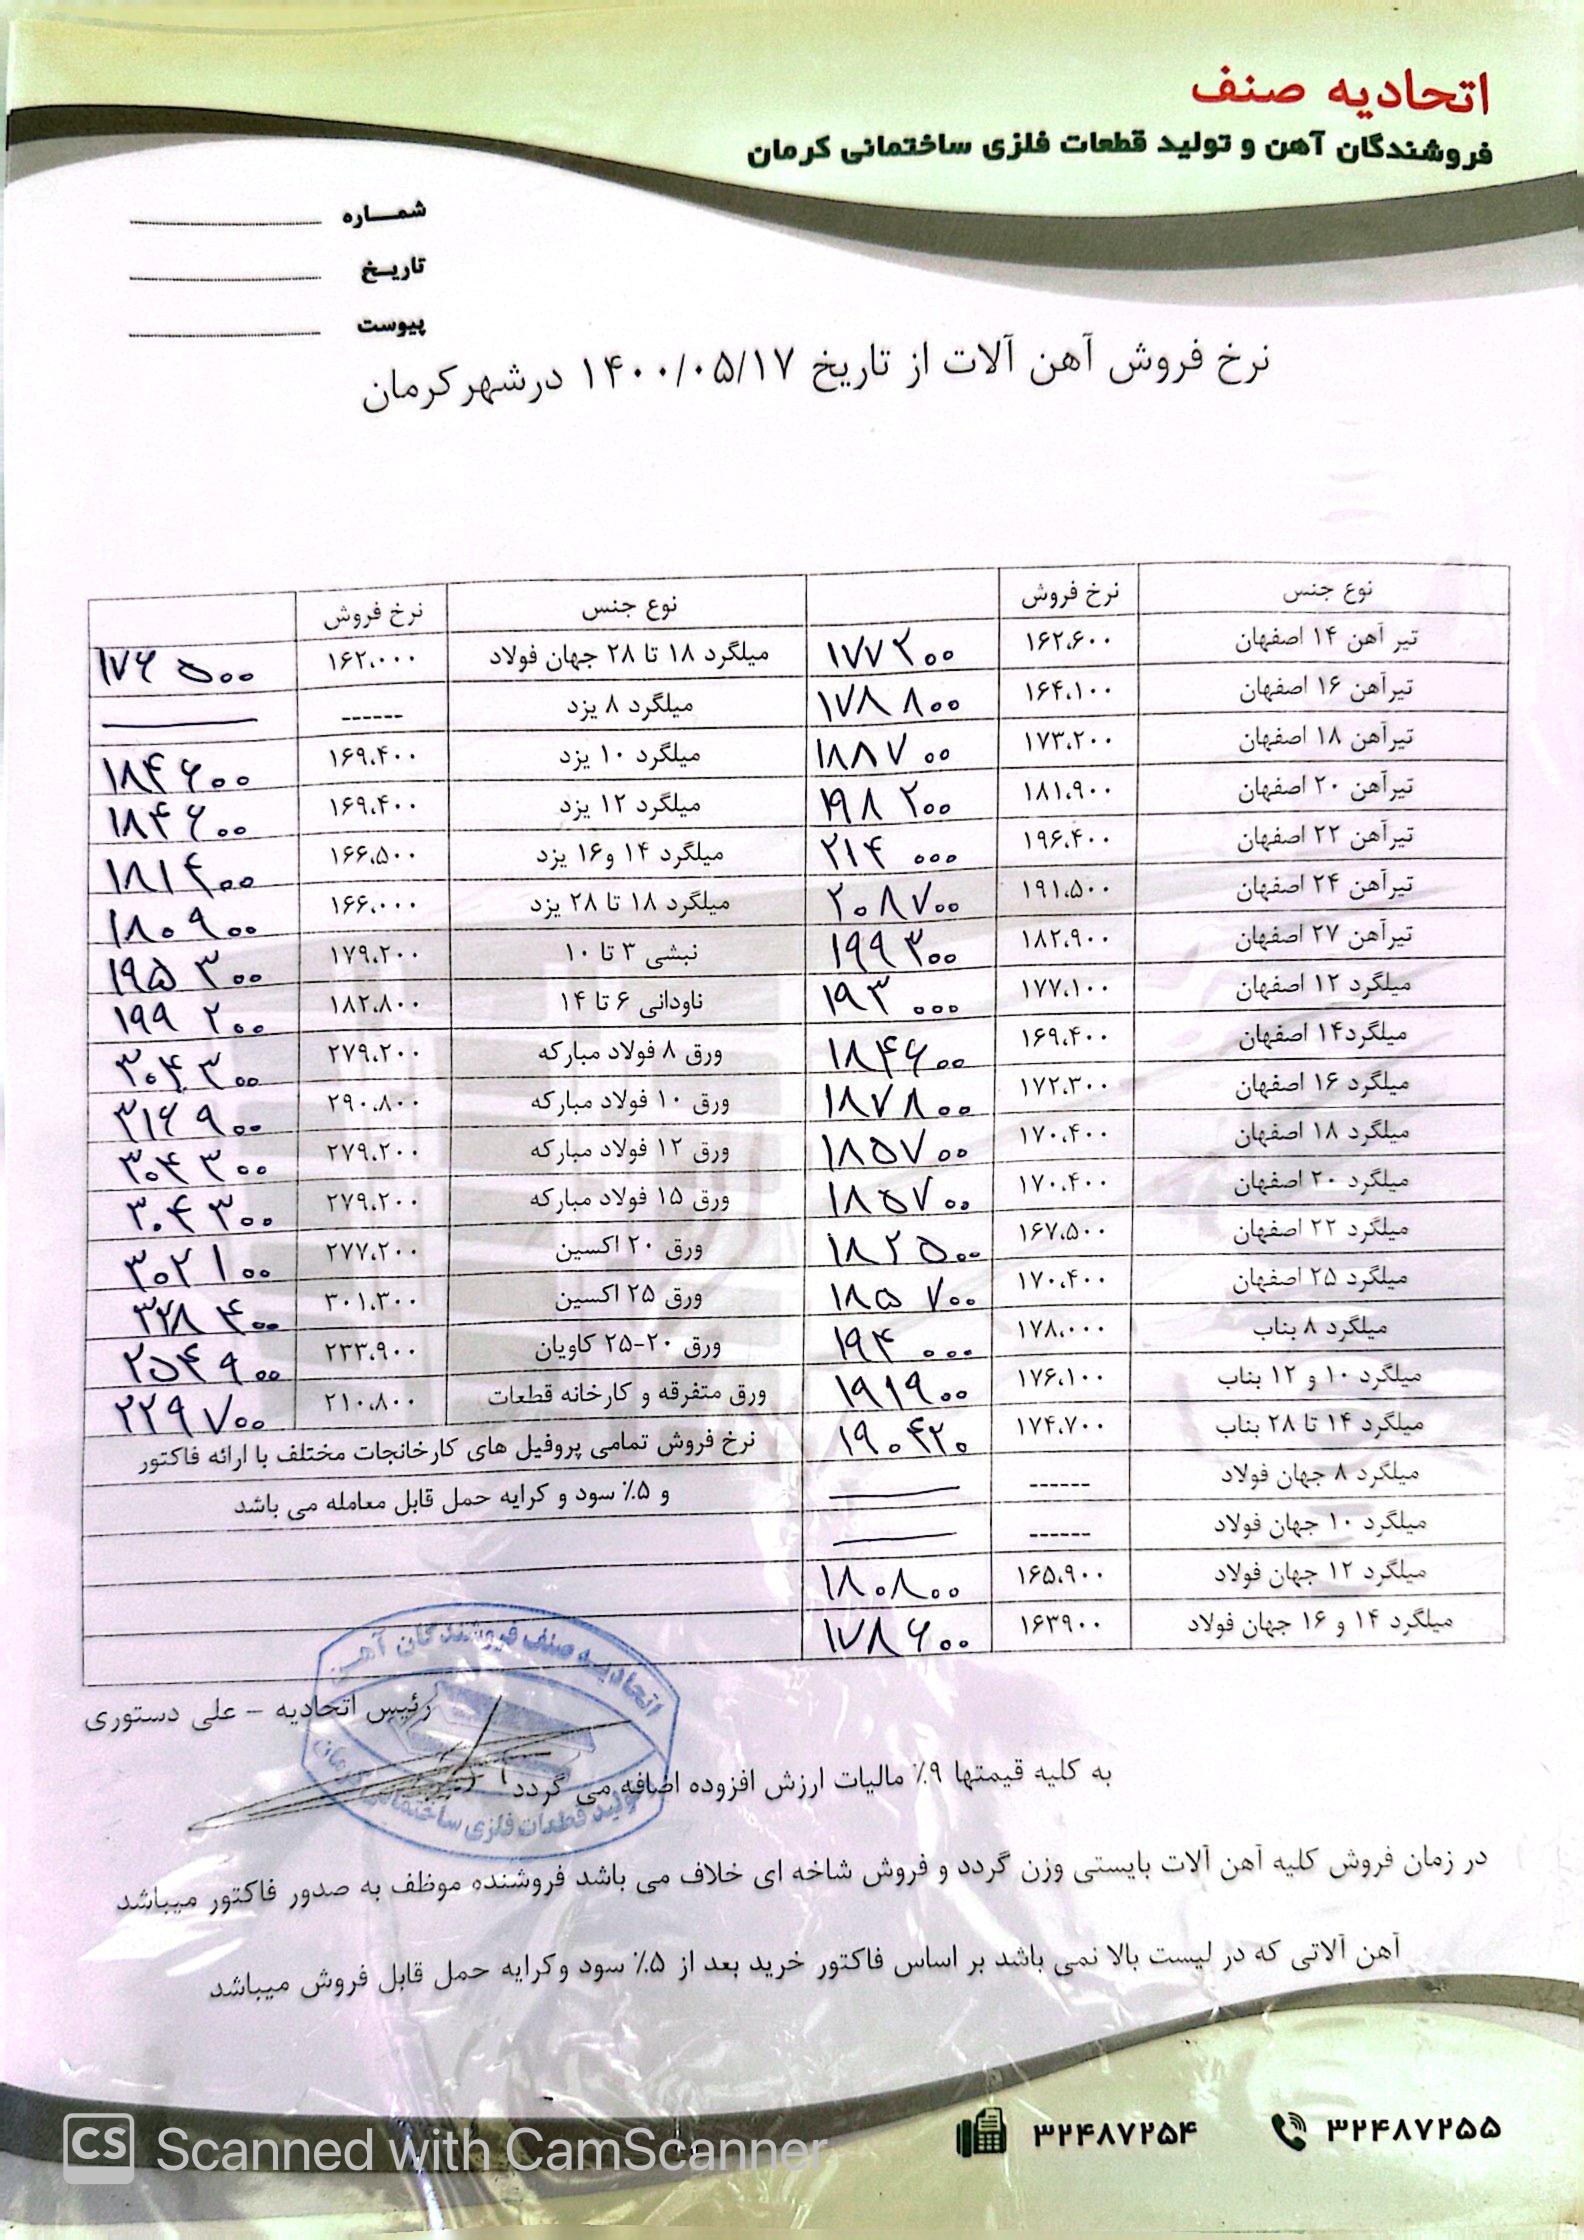 اتحادیه صنف
فروشندگان آهن و تولید قطعات فلزی ساختمانی کرمان
شمـــاره
تاریـخ
پیوست
نرخ فروش آهن آلات از تاریخ ۱۴۰۰/۰۵/۱۷ درشهرکرمان
نوع جنس نرخ فروش نوع جنس نرخ فروش
تیر آهن ۱۴ اصفهان ۱۶۲،۶۰۰ ۱۷۷۲۰۰ میلگرد ۱۸ تا ۲۸ جهان فولاد ۱۶۲،۰۰۰ ۱۷۶۵۰۰
تیرآهن ۱۶ اصفهان ۱۶۴،۱۰۰ ۱۷۸۸۰۰ میلگرد ۸ یزد ------ ——
تیرآهن ۱۸ اصفهان ۱۷۳،۲۰۰ ۱۸۸۷۰۰ میلگرد ۱۰ یزد ۱۶۹،۴۰۰ ۱۸۴۶۰۰
تیرآهن ۲۰ اصفهان ۱۸۱،۹۰۰ ۱۹۸۲۰۰ میلگرد ۱۲ یزد ۱۶۹،۴۰۰ ۱۸۴۶۰۰
تیرآهن ۲۲ اصفهان ۱۹۶،۴۰۰ ۲۱۴۰۰۰ میلگرد ۱۴ و۱۶ یزد ۱۶۶،۵۰۰ ۱۸۱۴۰۰
تیرآهن ۲۴ اصفهان ۱۹۱،۵۰۰ ۲۰۸۷۰۰ میلگرد ۱۸ تا ۲۸ یزد ۱۶۶،۰۰۰ ۱۸۰۹۰۰
تیرآهن ۲۷ اصفهان ۱۸۲،۹۰۰ ۱۹۹۳۰۰ نبشی ۳ تا ۱۰ ۱۷۹،۲۰۰ ۱۹۵۳۰۰
میلگرد ۱۲ اصفهان ۱۷۷،۱۰۰ ۱۹۳۰۰۰ ناودانی ۶ تا ۱۴ ۱۸۲،۸۰۰ ۱۹۹۲۰۰
میلگرد۱۴ اصفهان ۱۶۹،۴۰۰ ۱۸۴۶۰۰ ورق ۸ فولاد مبارکه ۲۷۹،۲۰۰ ۳۰۴۳۰۰
میلگرد ۱۶ اصفهان ۱۷۲،۳۰۰ ۱۸۷۸۰۰ ورق ۱۰ فولاد مبارکه ۲۹۰،۸۰۰ ۳۱۶۹۰۰
میلگرد ۱۸ اصفهان ۱۷۰،۴۰۰ ۱۸۵۷۰۰ ورق ۱۲ فولاد مبارکه ۲۷۹،۲۰۰ ۳۰۴۳۰۰
میلگرد ۲۰ اصفهان ۱۷۰،۴۰۰ ۱۸۵۷۰۰ ورق ۱۵ فولاد مبارکه ۲۷۹،۲۰۰ ۳۰۴۳۰۰
میلگرد ۲۲ اصفهان ۱۶۷،۵۰۰ ۱۸۲۵۰۰ ورق ۲۰ اکسین ۲۷۷،۲۰۰ ۳۰۲۱۰۰
میلگرد ۲۵ اصفهان ۱۷۰،۴۰۰ ۱۸۵۷۰۰ ورق ۲۵ اکسین ۳۰۱،۳۰۰ ۳۲۸۴۰۰
میلگرد ۸ بناب ۱۷۸،۰۰۰ ۱۹۴۰۰۰ ورق ۲۰-۲۵ کاویان ۲۳۳،۹۰۰ ۲۵۴۹۰۰
میلگرد ۱۰ و ۱۲ بناب ۱۷۶،۱۰۰ ۱۹۱۹۰۰ ورق متفرقه و کارخانه قطعات ۲۱۰،۸۰۰ ۲۲۹۷۰۰
میلگرد ۱۴ تا ۲۸ بناب ۱۷۴،۷۰۰ ۱۹۰۴۲۰ نرخ فروش تمامی پروفیل های کارخانجات مختلف با ارائه فاکتور
میلگرد ۸ جهان فولاد ------ —— و ۵٪ سود و کرایه حمل قابل معامله می باشد
میلگرد ۱۰ جهان فولاد ------ ——
میلگرد ۱۲ جهان فولاد ۱۶۵،۹۰۰ ۱۸۰۸۰۰
میلگرد ۱۴ و ۱۶ جهان فولاد ۱۶۳۹۰۰ ۱۷۸۶۰۰
اتحادیـه صنف فروشندگان آهـن
تولید قطعات فلزی ساختمانی کرمان
رئیس اتحادیه – علی دستوری
به کلیه قیمتها ۹٪ مالیات ارزش افزوده اضافه می گردد
در زمان فروش کلیه آهن آلات بایستی وزن گردد و فروش شاخه ای خلاف می باشد فروشنده موظف به صدور فاکتور میباشد
آهن آلاتی که در لیست بالا نمی باشد بر اساس فاکتور خرید بعد از ۵٪ سود وکرایه حمل قابل فروش میباشد
۳۲۴۸۷۲۵۵ ۳۲۴۸۷۲۵۴
CS Scanned with CamScanner